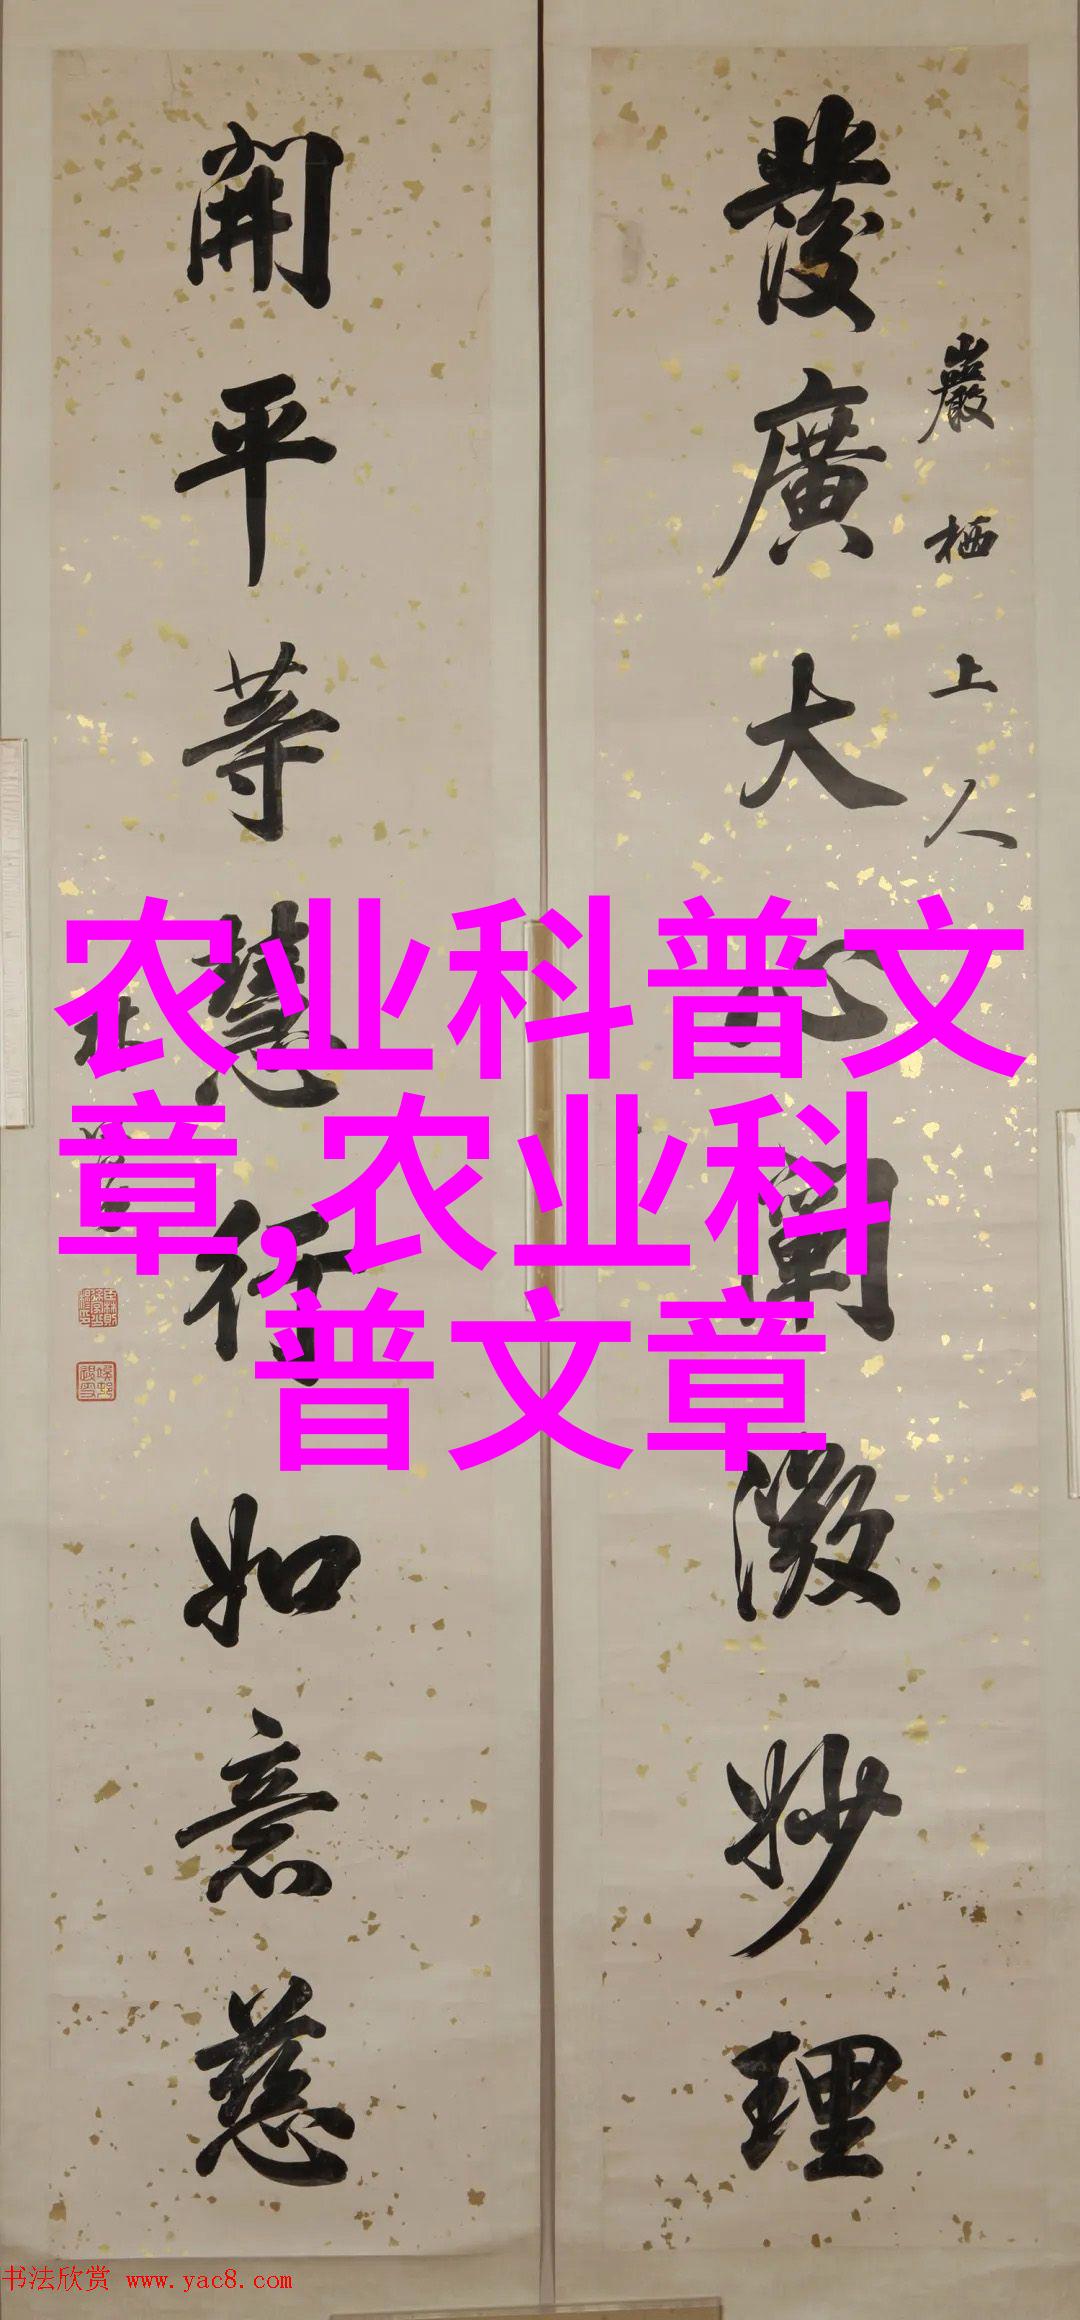 發廣大心闡微妙理
巖栖上人
開平等慧行如意慈
林
农业科普文
章,农业科
普文章
书法欣赏 www.yac8.com